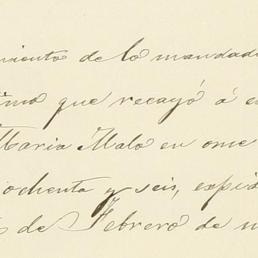 miento de lo mandado
timo que recayó á e
Maria Malo en ome
ochenta y seis, expi
de Febrero de m